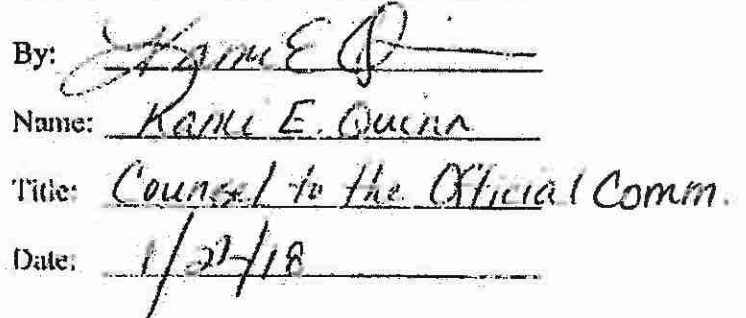 By: Kami E Q
Name: Kami E. Quinn
Title: Counsel to the Official Comm.
Date: 1/22/18